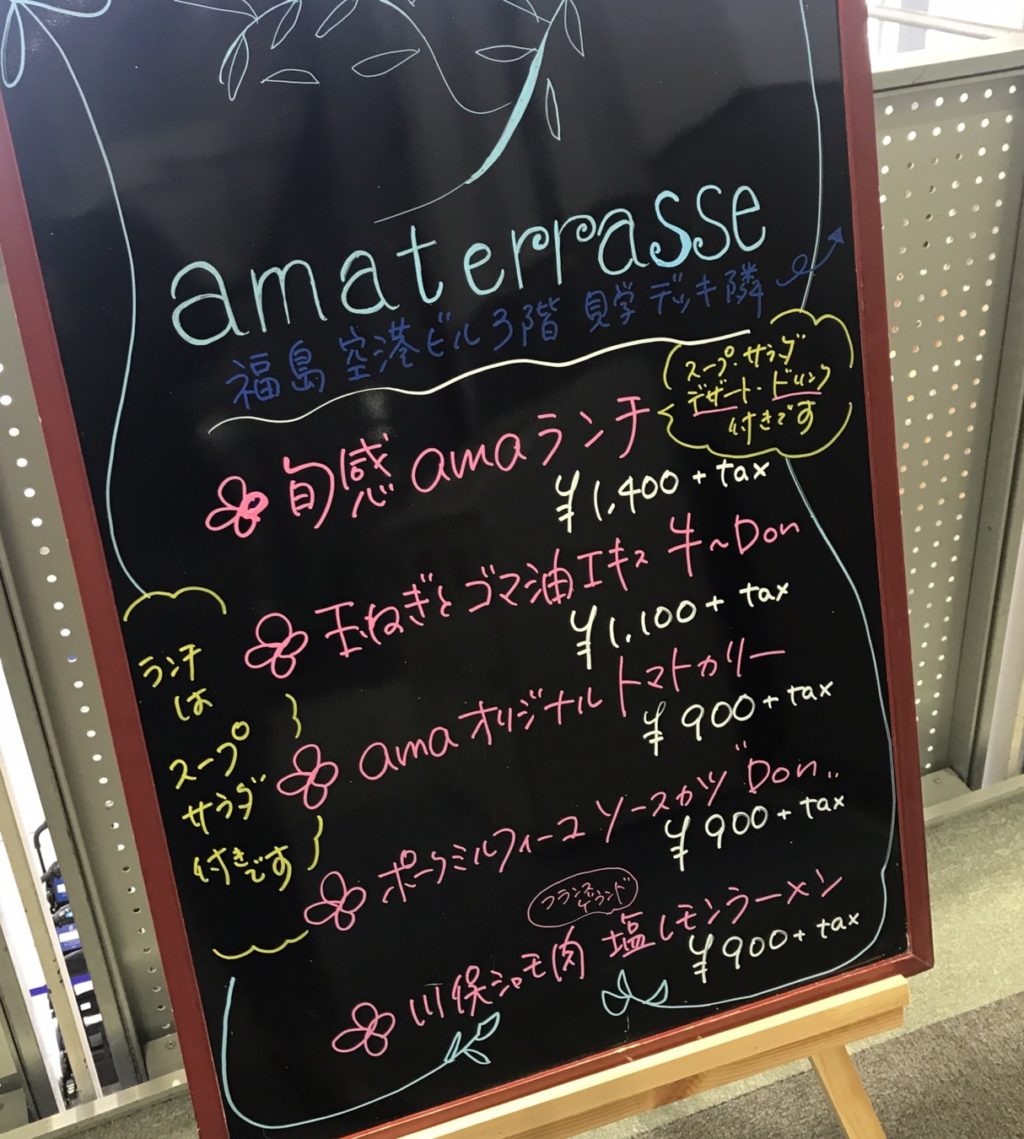 amaterrasse
福島空港ビル3階 見学デッキ隣
スープ・サラダ
デザート・ドリンク
付きです
旬感 amaランチ
¥1,400+tax
玉ねぎとゴマ油エキス 牛〜Don
¥1,100+tax
amaオリジナルトマトカリー
¥900+tax
ポークミルフィーユ ソースカツ"Don"
¥900+tax
川俣シャモ肉 塩レモンラーメン
¥900+tax
ランチ
は
スープ
サラダ
付きです